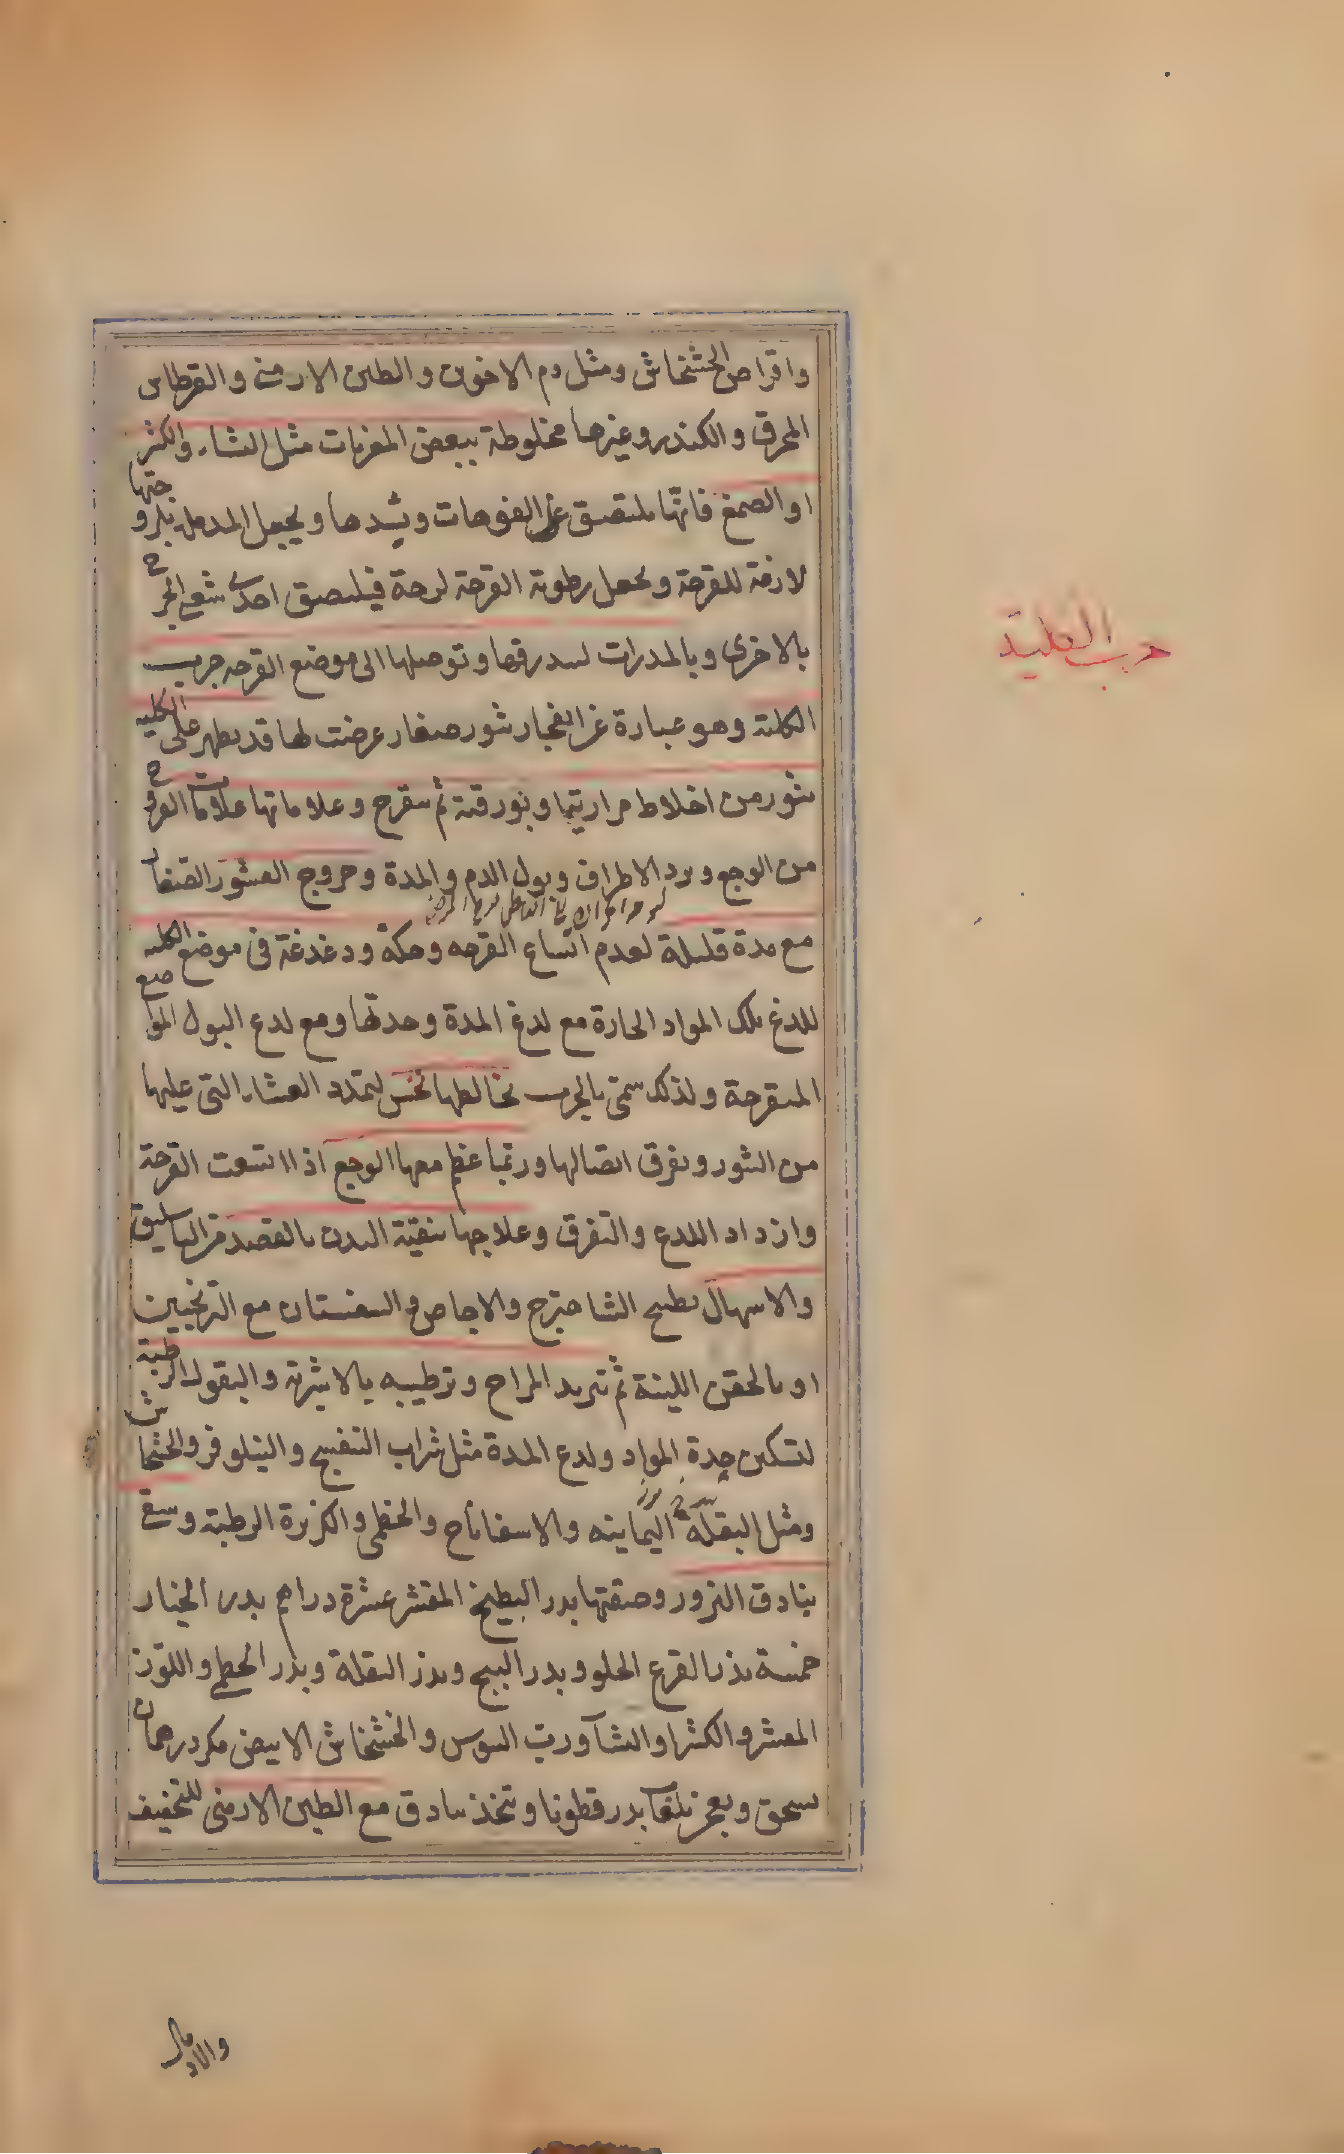 واقراص الخشخاش ومثل دم الاخوين والطين الارمنى والقرطاس
المحرق والكندر وغيرها مخلوطة ببعض المغريات مثل النشاء والكثيرا
او الصمغ فانها تلتصق على الفوهات ويشدها ويجعل المدملة بلزوجتها
لازمة للقرحة ويجعل رطوبة القرحة لزجة فيلتصق احدى شفتى الجرح
بالاخرى وبالمدرات لتبدرقها وتوصلها الى موضع القرحه جرب
الكلية وهو عبارة عن انفجار بثور صغار عرضت لها قد يظهر على الكلية
بثور من اخلاط مرارية او بورقية ثم يتقرح وعلاماتها علامات القروح
من الوجع وبرد الاطراف وبول الدم والمدة وخروج القشور الصغار
مع مدة قليلة لعدم اتساع القرحه وحكة ودغدغة فى موضع الكلية
للدغ تلك المواد الحارة مع لدغ المدة وحدتها ومع لدغ البول المواضع
المتقرحة ولذلك سمى بالجرب يخالطها نخس لتمدد الغشاء التى عليها
من البثور وتفرق اتصالها وربما عظم معها الوجع اذا اتسعت القرحة
وازداد اللدغ والتفرق وعلاجها تنقية البدن بالفصد من الباسليق
والاسهال بطبيخ الشاهترج والاجاص والسفستان مع الترنجبين
او بالحقن اللينة ثم تبريد المزاج وترطيبه بالاشربة والبقول الرطبة
لتسكين حدة المواد ولدغ المدة مثل شراب البنفسج والنيلوفر والخشخاش
ومثل البقلة اليمانيه والاسفاناخ والخطمى والكزبرة الرطبة وسقى
بنادق البزور وصفتها بذر البطيخ المقشر عشرة دراهم بذر الخيار
خمسة بذر القرع الحلو وبذر البنج وبذر البقلة وبذر الخطمى واللوز
المقشر والكثيرا والنشا ورب السوس والخشخاش الابيض مكد درهمان
يسحق ويعجن بلعاب بذر قطونا ويتخذ بنادق مع الطين الارمنى للتجفيف
جرب الكلية